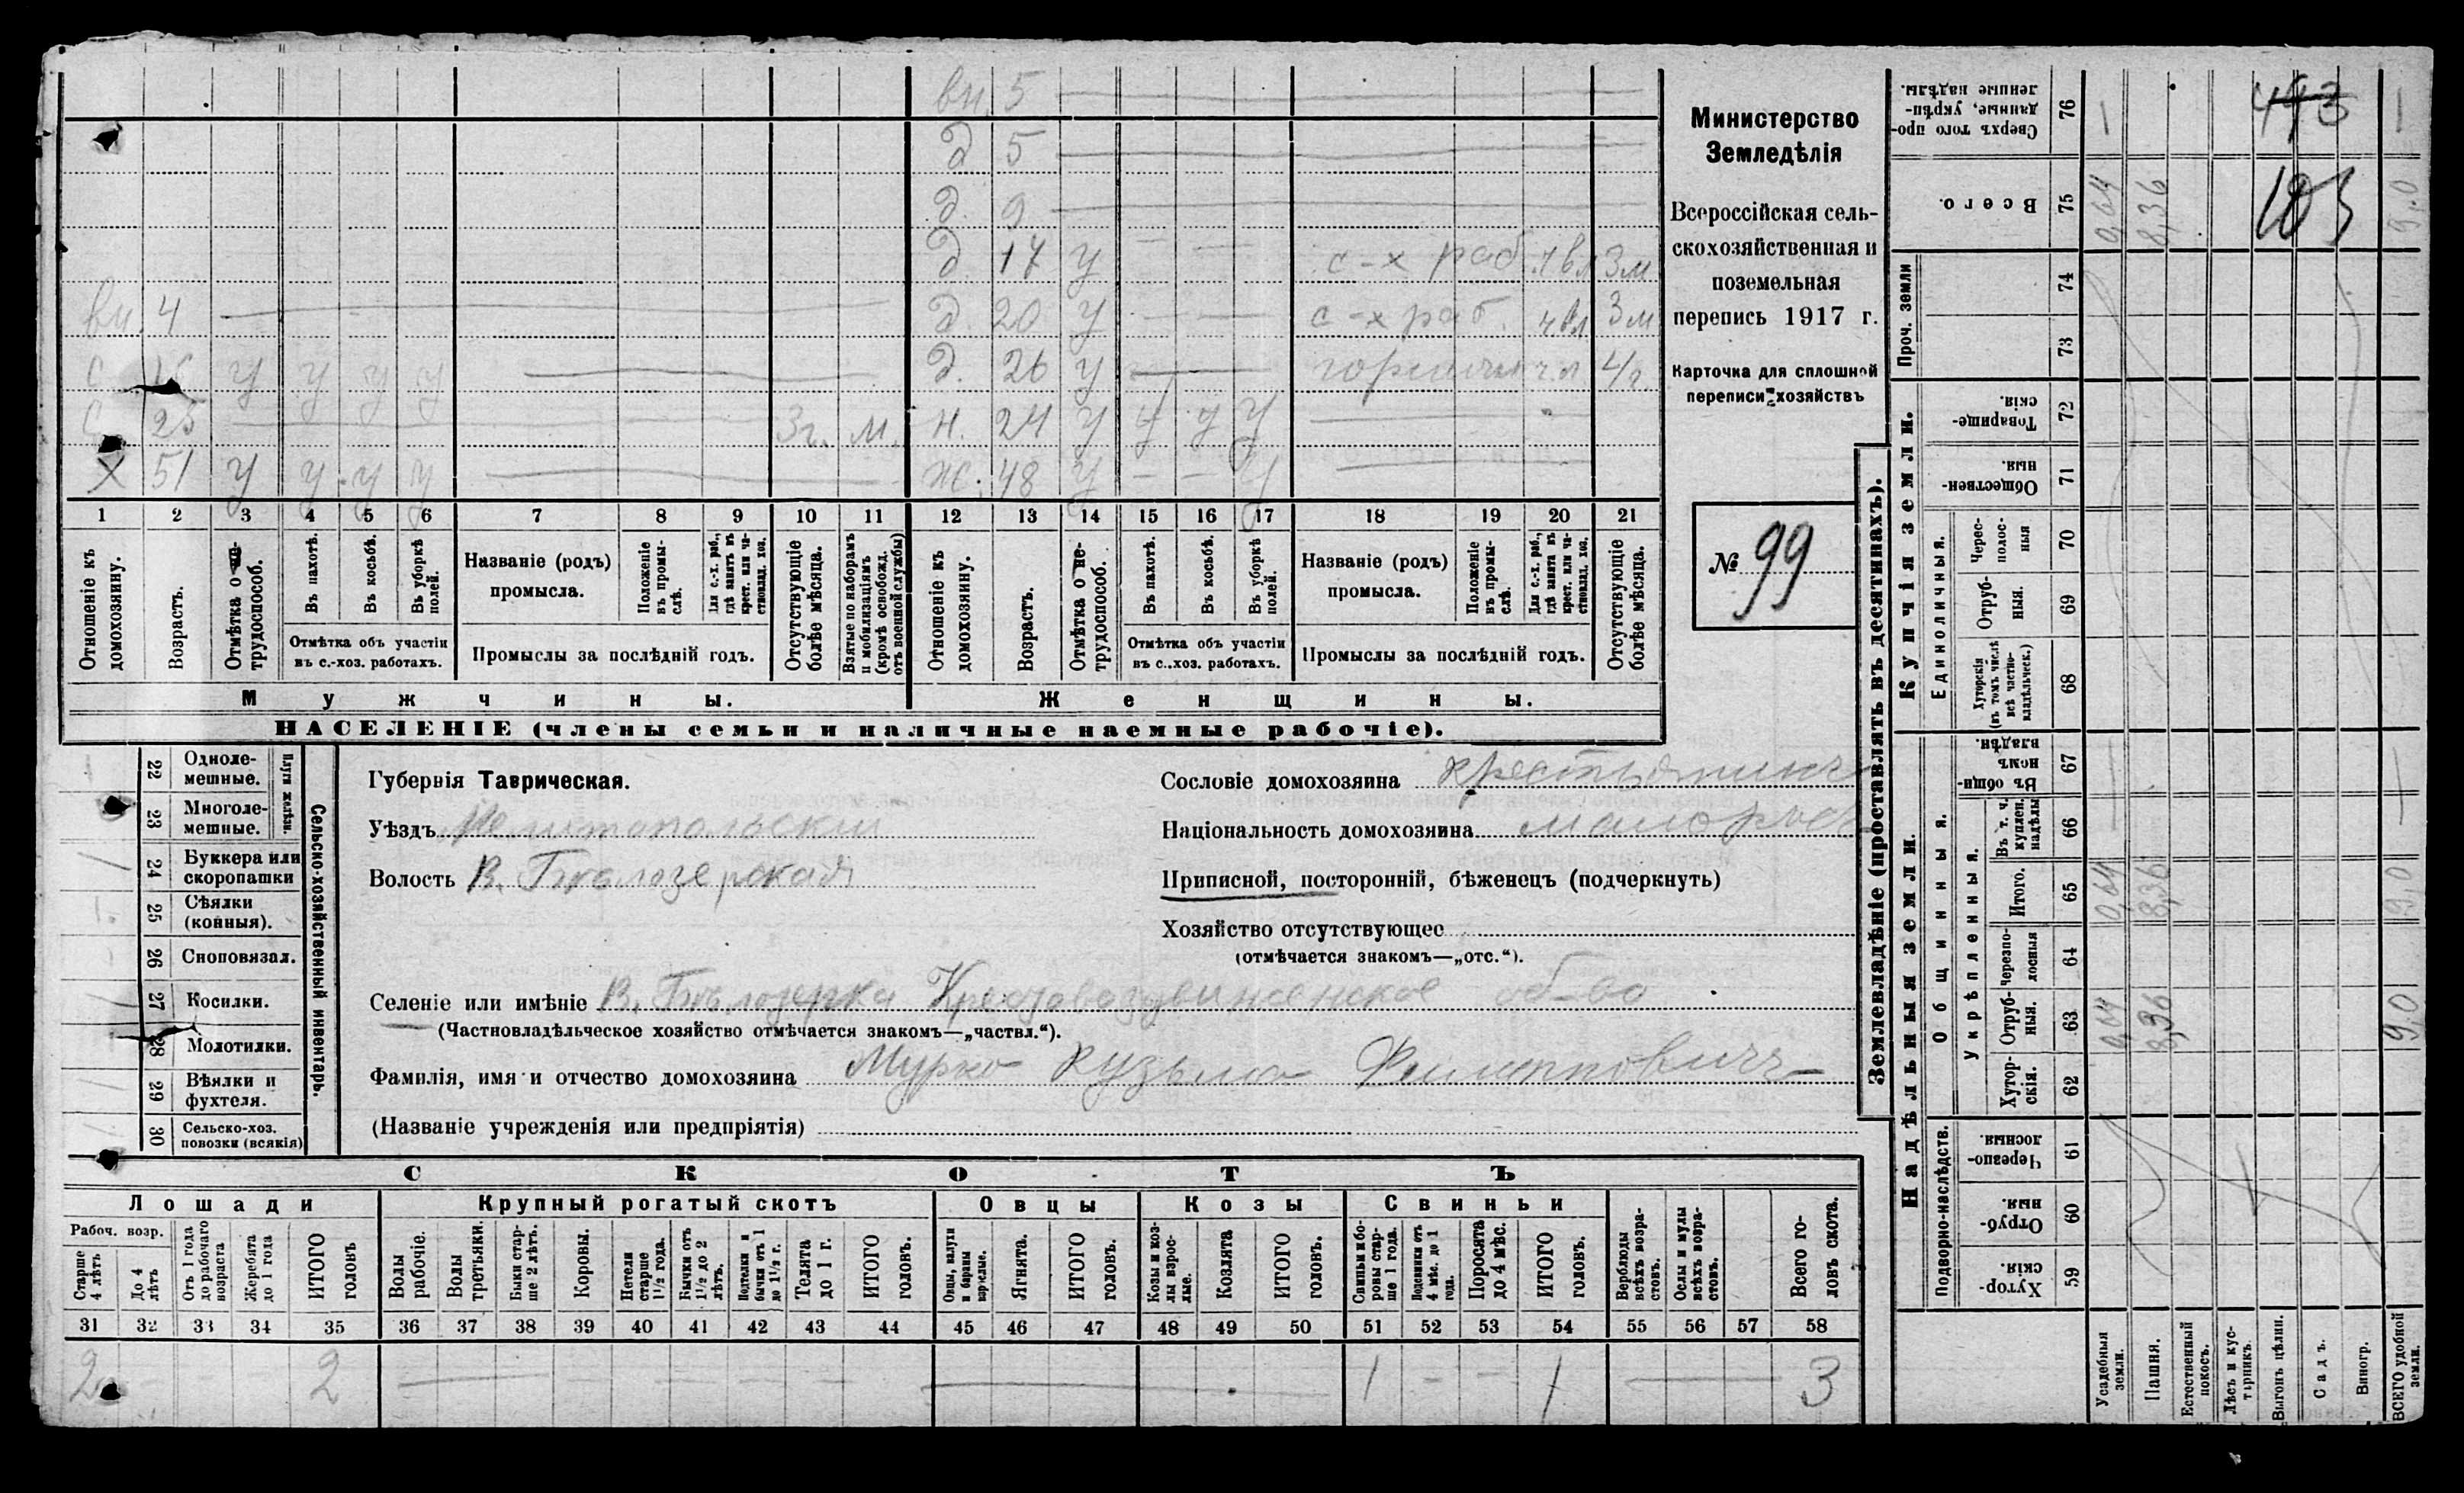 вн. 5
д 5
д. 9
д. 17 у — — с-х раб. ч вл 3 м
вн. 4 д. 20 у — — с-х раб. ч вл 3 м
с у у у у д. 26 у 4 г
с 25 3 г. м. н. 24 у у у у
х 51 у у у у ж. 48 у — — у
1 2 3 4 5 6 7 8 9 10 11 12 13 14 15 16 17 18 19 20 21
Отношеніе къ домохозяину.
Возрастъ.
Отмѣтка о не-трудоспособ.
Въ пахотѣ.
Въ косьбѣ.
Въ уборкѣ полей.
Отмѣтка объ участіи въ с.-хоз. работахъ.
Названіе (родъ) промысла.
Положеніе въ промы-слѣ.
Для с.-х. раб., гдѣ занятъ въ крест. или ча-стновлад. хоз.
Промыслы за послѣдній годъ.
Отсутствующіе болѣе мѣсяца.
Взятые по наборамъ и мобилизаціямъ (кромѣ освобожд. отъ военной службы)
Отношеніе къ домохозяину.
Возрастъ.
Отмѣтка о не-трудоспособ.
Въ пахотѣ.
Въ косьбѣ.
Въ уборкѣ полей.
Отмѣтка объ участіи въ с..хоз. работахъ.
Названіе (родъ) промысла.
Положеніе въ промы-слѣ.
Для с.-х. раб., гдѣ занята въ крест. или ча-стновлад. хоз.
Промыслы за послѣдній годъ.
Отсутствующіе болѣе мѣсяца.
Мужчины.
Женщины.
НАСЕЛЕНІЕ (члены семьи и наличные наемные рабочіе).
Министерство
Земледѣлія
Всероссійская сель-
скохозяйственная и
поземельная
перепись 1917 г.
Карточка для сплошной
переписи хозяйствъ
№ 99
22 Одноле-мешные.
23 Многоле-мешные.
Плуги желѣзн.
24 Буккера или скоропашки
25 Сѣялки (конныя).
26 Сноповязал.
27 Косилки.
28 Молотилки.
29 Вѣялки и фухтеля.
30 Сельско-хоз. повозки (всякія)
Сельско-хозяйственный инвентарь.
Губернія Таврическая.
Уѣздъ Мелитопольскій
Волость В. Бѣлозерская
Селеніе или имѣніе В. Бѣлозерка Крестовоздвиженское об-во
(Частновладѣльческое хозяйство отмѣчается знакомъ—„частвл.“).
Фамилія, имя и отчество домохозяина Мурко Кузьма Филипповичъ
(Названіе учрежденія или предпріятія)
Сословіе домохозяина крестьянинъ
Національность домохозяина малорос
Приписной, посторонній, бѣженецъ (подчеркнуть)
Хозяйство отсутствующее
(отмѣчается знакомъ—„отс.“).
СКОТЪ
Лошади
Крупный рогатый скотъ
Овцы
Козы
Свиньи
Рабоч. возр.
Старше 4 лѣтъ
До 4 лѣтъ
Отъ 1 года до рабочаго возраста
Жеребята до 1 года
ИТОГО головъ
Волы рабочіе.
Волы третьяки.
Быки стар-ше 2 лѣтъ.
Коровы.
Нетели старше 1½ года.
Бычки отъ 1½ до 2 лѣтъ.
Подтелки и бычки отъ 1 до 1½ г.
Телята до 1 г.
ИТОГО головъ.
Овцы, валухи и бараны взрослые.
Ягнята.
ИТОГО головъ.
Козы и коз-лы взрос-лые.
Козлята
ИТОГО головъ.
Свиньи и бо-ровы стар-ше 1 года.
Подсвинки отъ 4 мѣс. до 1 года.
Поросята до 4 мѣс.
ИТОГО головъ.
Верблюды всѣхъ возра-стовъ.
Ослы и мулы всѣхъ возра-стовъ.
Всего го-ловъ скота.
31 32 33 34 35 36 37 38 39 40 41 42 43 44 45 46 47 48 49 50 51 52 53 54 55 56 57 58
2 — — — 2 1 — — 1 3
Землевладѣніе (проставлять въ десятинахъ).
Надѣльныя земли.
Купчія земли.
Проч. земли
Подворно-наслѣдств.
Общинныя.
Укрѣпленныя.
Единоличныя.
Сверхъ того про-данные, укрѣп-ленные надѣлы. 76 — 493 —
Всего. 75 0,64 8,36 103 9,0
74
73
Товарище-скія. 72
Обществен-ныя. 71
Черес-полос-ныя 70
Отруб-ныя. 69
Хуторскія (въ томъ числѣ всѣ частно-владѣльческ.) 68
Въ общи-номъ владѣн. 67 —
Въ т. ч. куплен. надѣлы 66
Итого. 65 0,64 8,36 9,0
Черезпо-лосныя 64
Отруб-ныя. 63 0,64 8,36 9,0
Хутор-скія. 62
Черезпо-лосныя. 61
Отруб-ныя. 60
Хутор-скія. 59
Усадебныя земли.
Пашня.
Естественный покосъ.
Лѣсъ и кус-тарникъ.
Выгонъ цѣлин.
Садъ.
Виногр.
ВСЕГО удобной земли.